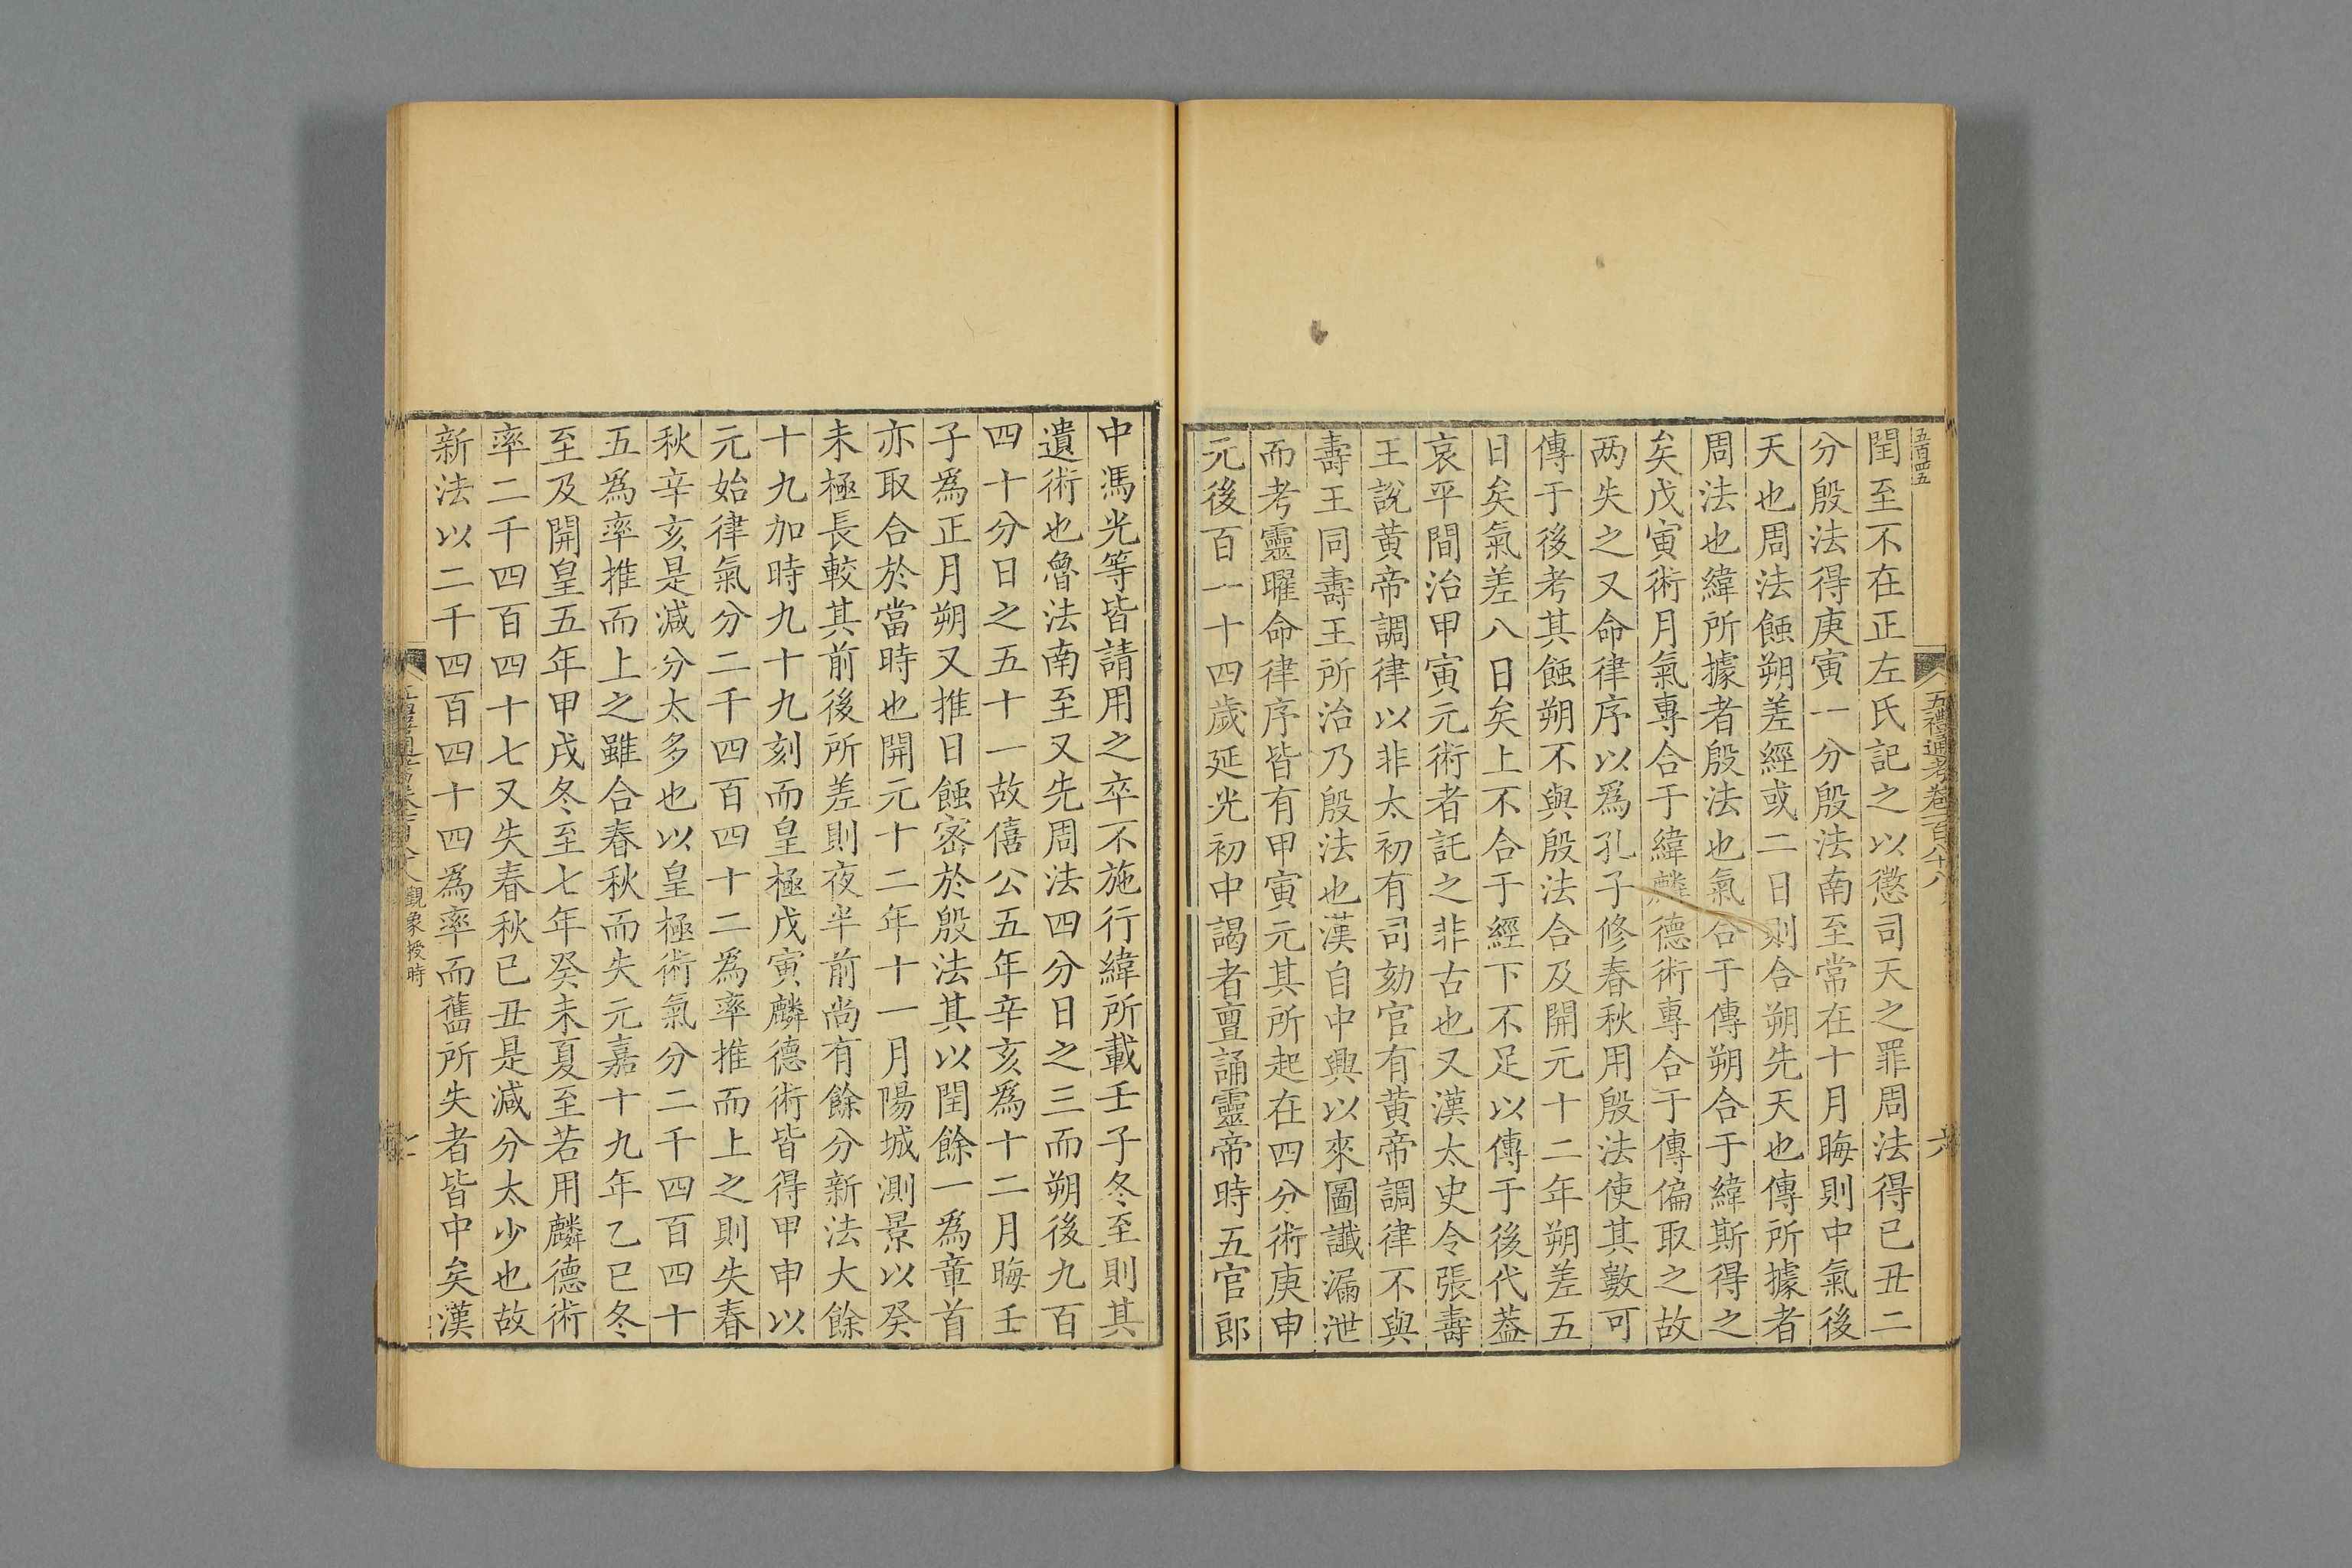 五百四五
五禮通考卷一百八十八
六
閏至不在正左氏記之以懲司天之罪周法得已丑二
分殷法得庚寅一分殷法南至常在十月晦則中氣後
天也周法蝕朔差經或二日則合朔先天也傳所據者
周法也緯所據者殷法也氣合于傳朔合于緯斯得之
矣戊寅術月氣專合于緯麟德術專合于傳偏取之故
两失之又命律序以爲孔子修春秋用殷法使其數可
傳于後考其蝕朔不與殷法合及開元十二年朔差五
日矣氣差八日矣上不合于經下不足以傳于後代葢
哀平間治甲寅元術者託之非古也又漢太史令張壽
王說黄帝調律以非太初有司劾官有黄帝調律不與
壽王同壽王所治乃殷法也漢自中興以來圖讖漏泄
而考靈曜命律序皆有甲寅元其所起在四分術庚申
元後百一十四歲延光初中謁者亶誦靈帝時五官郎
中馮光等皆請用之卒不施行緯所載壬子冬至則其
遺術也魯法南至又先周法四分日之三而朔後九百
四十分日之五十一故僖公五年辛亥爲十二月晦壬
子爲正月朔又推日蝕宻於殷法其以閏餘一爲章首
亦取合於當時也開元十二年十一月陽城測景以癸
未極長較其前後所差則夜半前尚有餘分新法大餘
十九加時九十九刻而皇極戊寅麟德術皆得甲申以
元始律氣分二千四百四十二爲率推而上之則失春
秋辛亥是減分太多也以皇極術氣分二千四百四十
五爲率推而上之雖合春秋而失元嘉十九年乙巳冬
至及開皇五年甲戌冬至七年癸未夏至若用麟德術
率二千四百四十七又失春秋已丑是減分太少也故
新法以二千四百四十四爲率而舊所失者皆中矣漢
觀象授時